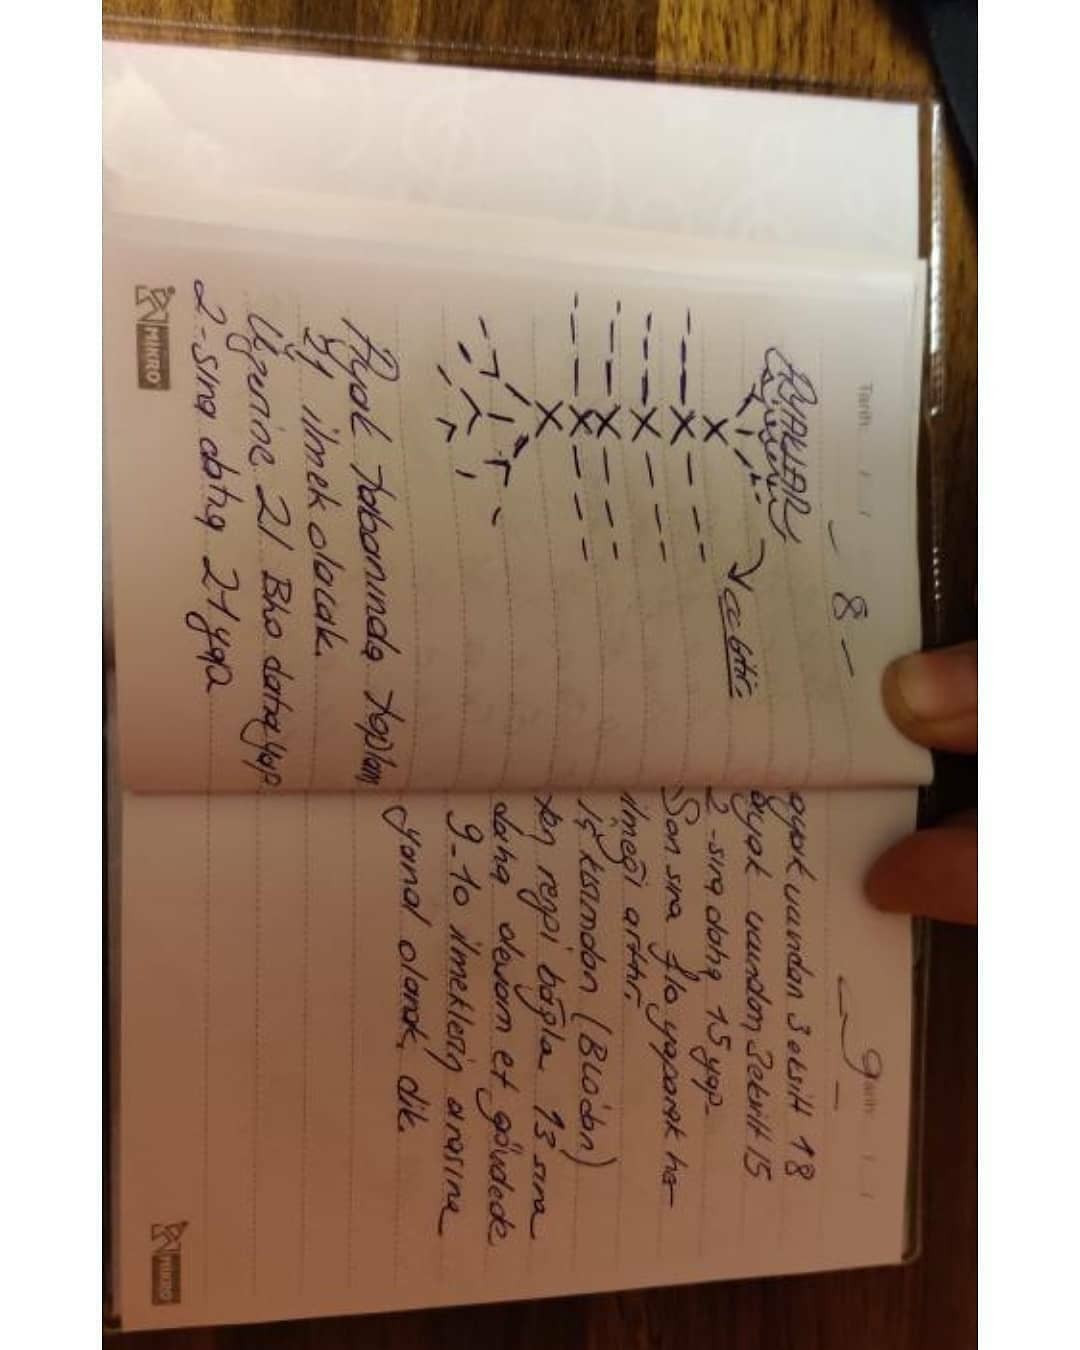 Tarih / /
- 8 -
AYAKLAR
arttır.
Ayak tabanında toplam
21 ilmek olacak.
Üzerine 21 Blo daha yap
2-sıra daha 21 yap
MIKRO
Tarih / /
- 9 -
ayak ucundan 3 eksilt 18
ayak ucundan 3 eksilt 15
2-sıra daha 15 yap-
Son sıra flo yaparak her
ilmeği arttır.
İç kısımdan (Blo'dan)
ten rengi bağla 13 sıra
daha devam et gövdede
9-10 ilmeklerin arasına
yanal olarak dik.
MIKRO